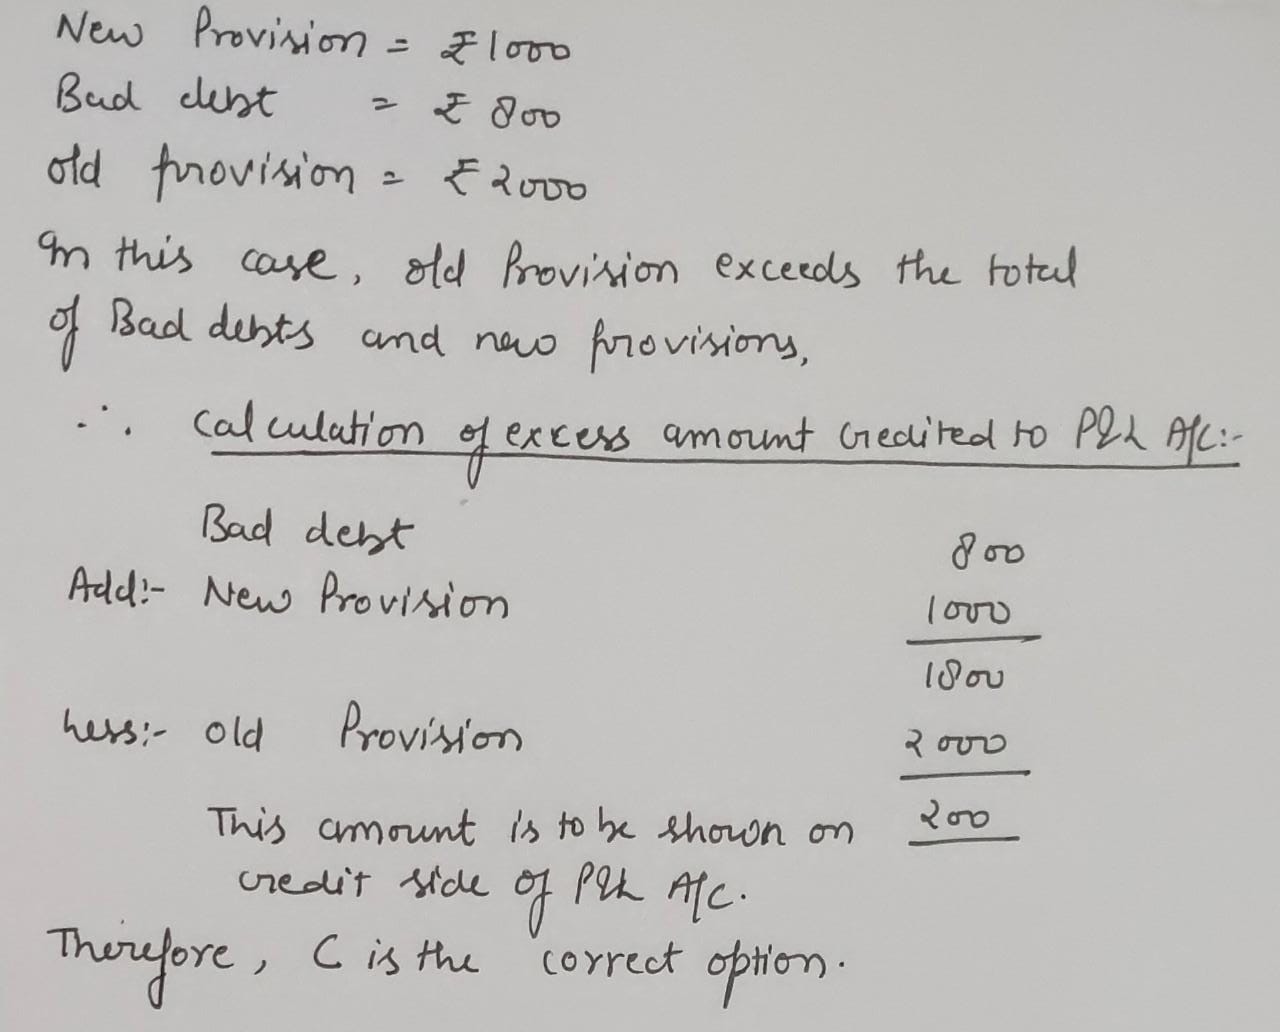 New Provision = ₹1000
Bad debt = ₹ 800
old provision = ₹2000
In this case, old Provision exceeds the total
of Bad debts and new provisions,
∴ Calculation of excess amount credited to P&L A/C:-
Bad debt 800
Add:- New Provision 1000
1800
Less:- old Provision 2000
This amount is to be shown on 200
credit side of P&L A/C.
Therefore, C is the correct option.